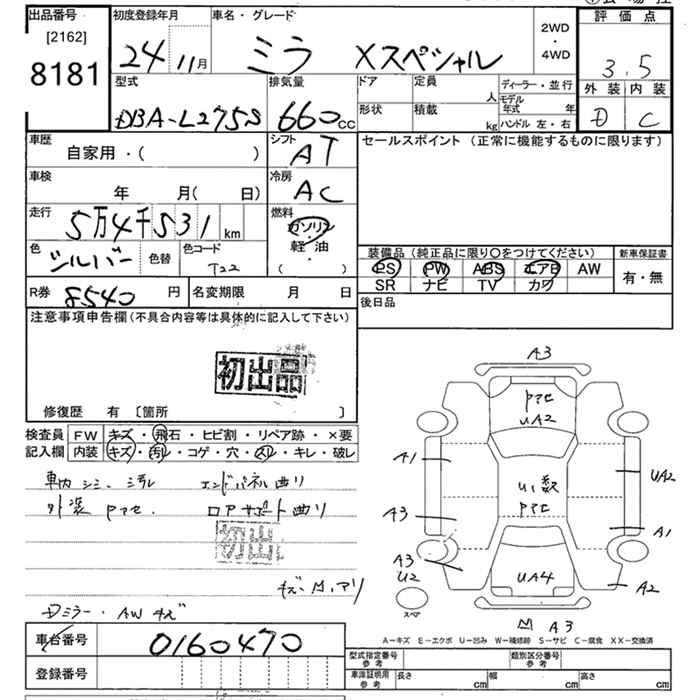 出品番号
[2162]
8181
初度登録年月
24 11月
車名・グレード
ミラ Xスペシャル
2WD
・
4WD
評価点
3.5
外装 内装
D C
型式
DBA-L275S
排気量
660cc
ドア
定員
人
ディーラー・並行
形状
積載
kg
モデル年式 年
ハンドル 左・右
車歴
自家用・( )
シフト
AT
セールスポイント (正常に機能するものに限ります)
車検
年 月( 日)
冷房
AC
走行
5万4千531km
燃料
ガソリン
・
軽油
( )
色
シルバー
色替
色コード
T22
装備品(純正品に限り○をつけてください)
新車保証書
PS PW ABS エアB AW
SR ナビ TV カワ
有・無
R券 8540 円
名変期限 月 日
後日品
注意事項申告欄(不具合内容等は具体的に記入して下さい)
初出品
修復歴 有 〔箇所 〕
検査員
記入欄
FW キズ・飛石・ヒビ割・リペア跡・×要
内装 キズ・汚れ・コゲ・穴・スレ・キレ・破レ
車内 シミ、ヨゴレ エンドパネル曲り
外装 アセ. ロアサポート曲り
初出
キズ・凹アリ
Dミラー・AWキズ
車台番号 0160470
登録番号
A3
アセ
UA2
A1
U1 数
アセ
UA2
A3
A1
A3
U2
UA4
A2
スペア
凹 A3
A-キズ E-エクボ U-凹み W-補修跡 S-サビ C-腐食 XX-交換済
型式指定番号
参考
類別区分番号
参考
車庫証明用
参考
長さ cm 幅 cm 高さ cm